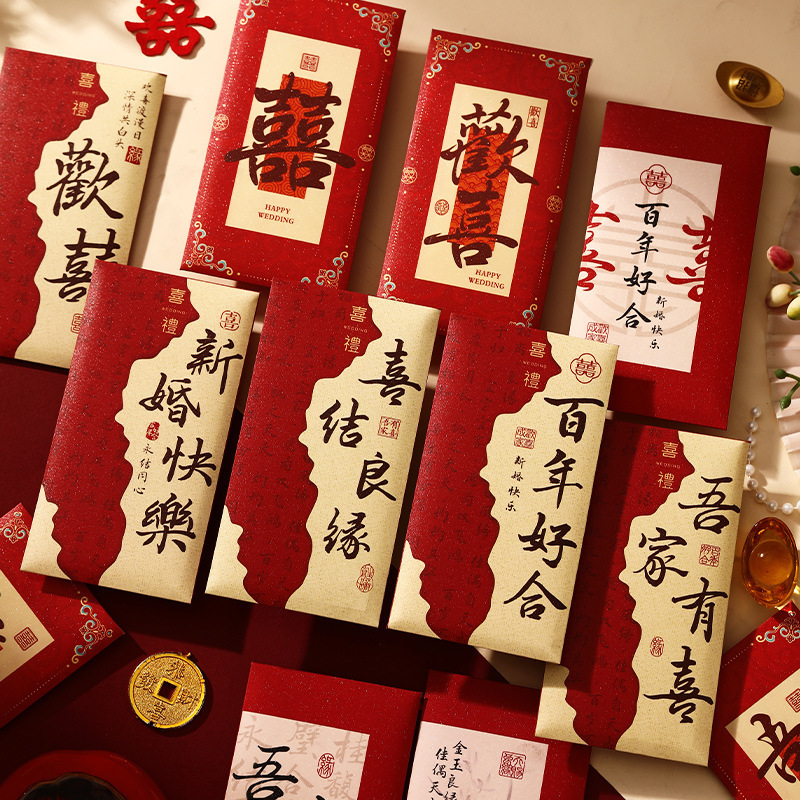 囍
喜
禮
欢喜浪漫日
深情共白头
歡
囍
囍
囍
HAPPY
WEDDING
歡喜
歡
喜
HAPPY
WEDDING
囍
百年好合
新婚快乐
喜
喜
喜
WEDDING
禮
新
婚
快
樂
永结同心
喜
WEDDING
禮
喜
结
良
缘
喜
WEDDING
禮
囍
百
年
好
合
新婚快乐
喜
WEDDING
禮
吾
家
有
喜
吾
金玉良缘
佳偶天